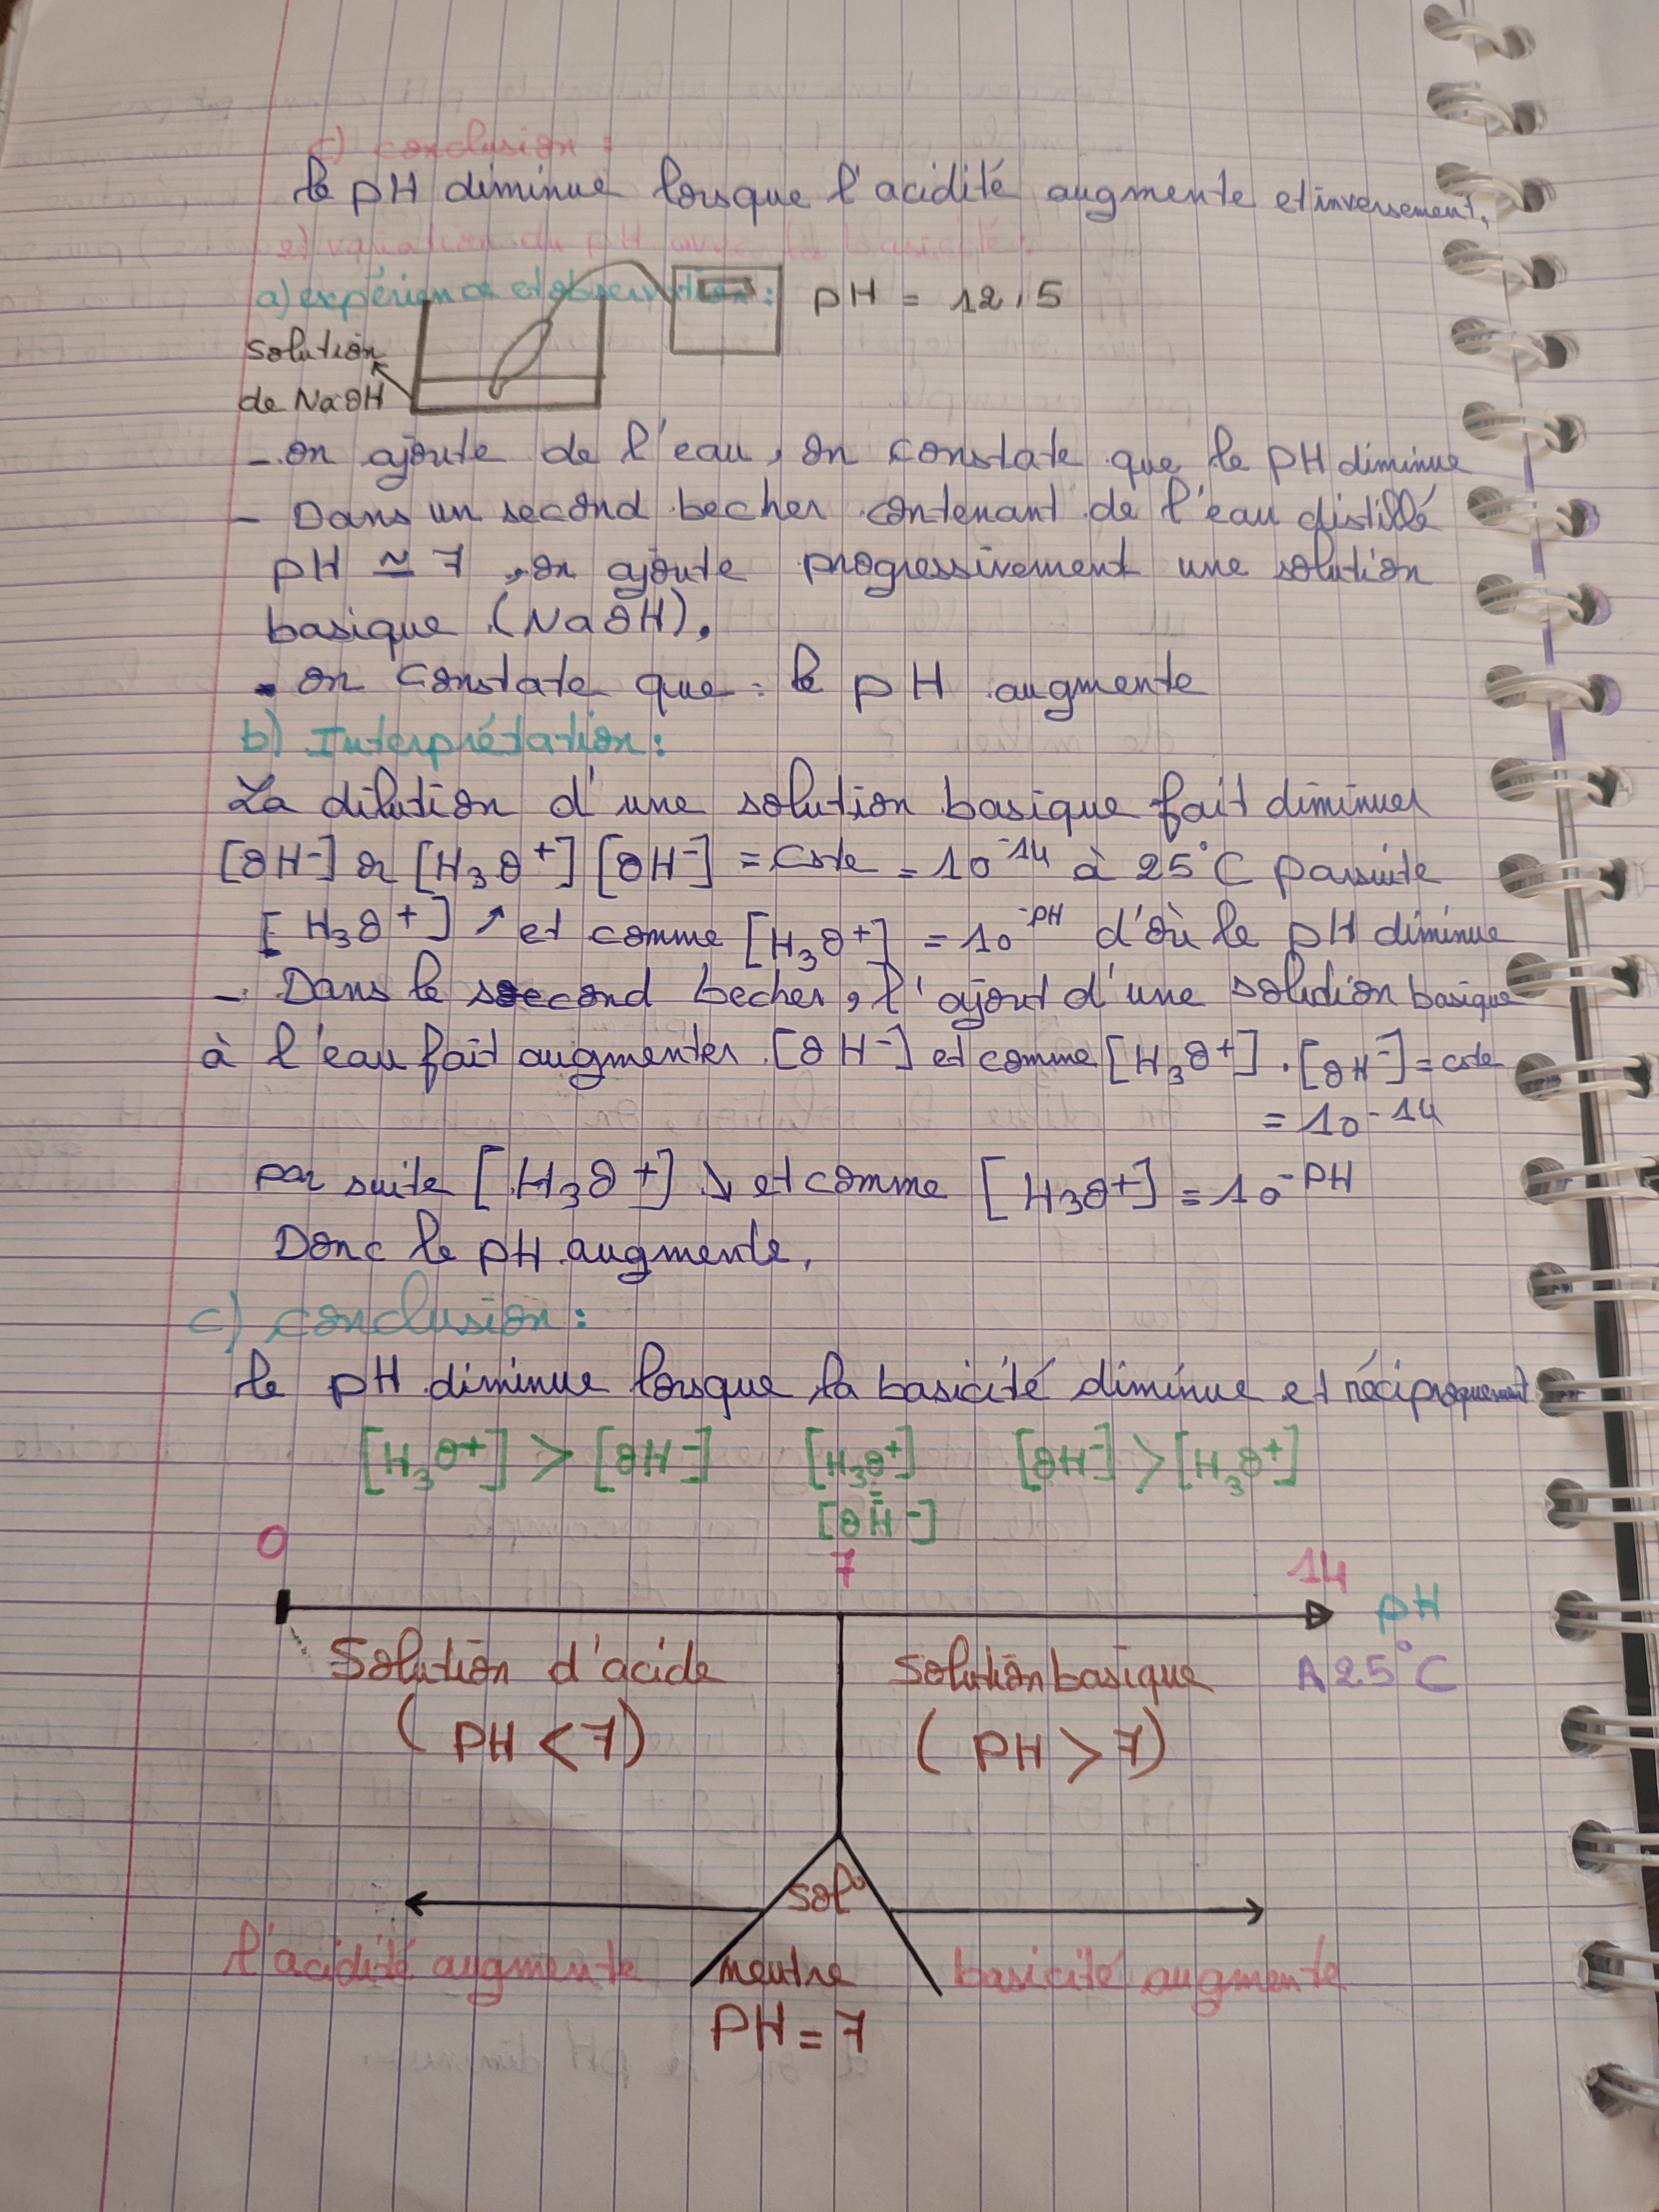 c) conclusion :
le pH diminue lorsque l'acidité augmente et inversement.
2) variation du pH avec la basicité :
a) expérience et observation :
pH = 12,5
solution
de NaOH
- on ajoute de l'eau, on constate que le pH diminue
- Dans un second becher contenant de l'eau distillé
pH ≃ 7, on ajoute progressivement une solution
basique (NaOH).
- on constate que : le pH augmente
b) Interprétation :
La dilution d'une solution basique fait diminuer
[OH⁻] or [H₃O⁺][OH⁻] = cste = 10⁻¹⁴ à 25°C par suite
[H₃O⁺] ↗ et comme [H₃O⁺] = 10⁻ᵖᴴ d'où le pH diminue
- Dans le second becher, l'ajout d'une solution basique
à l'eau fait augmenter [OH⁻] et comme [H₃O⁺].[OH⁻] = cste
= 10⁻¹⁴
par suite [H₃O⁺] ↘ et comme [H₃O⁺] = 10⁻ᵖᴴ
Donc le pH augmente.
c) conclusion :
le pH diminue lorsque la basicité diminue et réciproquement
[H₃O⁺] > [OH⁻] [H₃O⁺] [OH⁻] > [H₃O⁺]
=
[OH⁻]
0 7 14
pH
Solution d'acide Solution basique A 25°C
(PH < 7) (PH > 7)
sol°
l'acidité augmente neutre basicité augmente
PH = 7